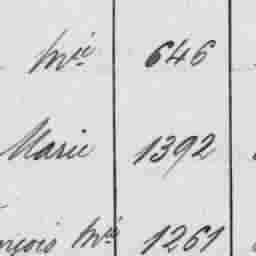 Mie 646
Marie 1392
nçois Mie 1261